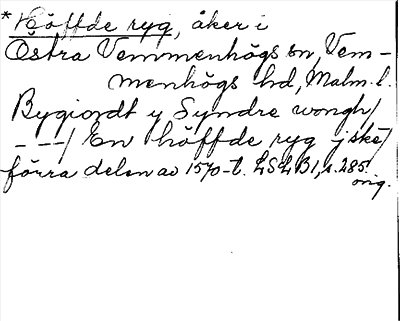 *Höffde ryg, åker i
Östra Vemmenhögs sn, Vem-
menhögs hd, Malm. l.
Bygiordt y Syndre wongh/
---/ En höffde ryg jske/
förra delen av 1570-t. LSLB1, s. 285.
orig.